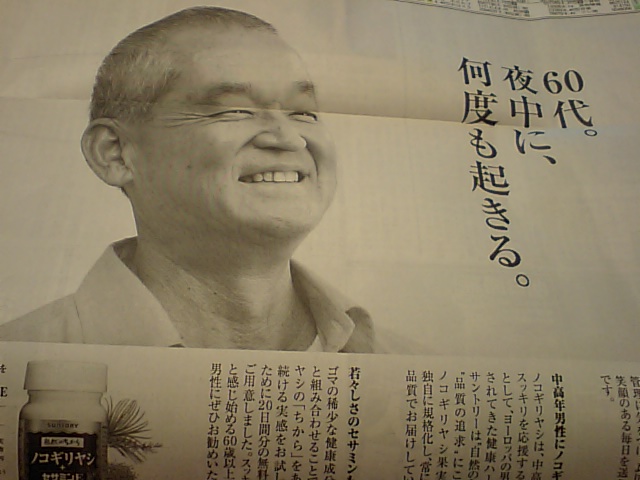 60代。
夜中に、
何度も起きる。
です。
笑顔のある毎日を送
中高年男性にノコギ
ノコギリヤシは、中高
スッキリを応援する
として、ヨーロッパの男
されてきた健康ハー
サントリーは、自然の
“品質の追求”にこ
ノコギリヤシ果実
独自に規格化し、常に
品質でお届けしてい
若々しさのセサミン
ゴマの稀少な健康成分
と組み合わせることで
ヤシの「ちから」をあ
続ける実感をお試し
ために20日間分の無料
ご用意しました。スッキ
と感じ始める60歳以上
男性にぜひお勧めいた
を
SUNTORY
ノコギリヤシ
+
セサミンE
E